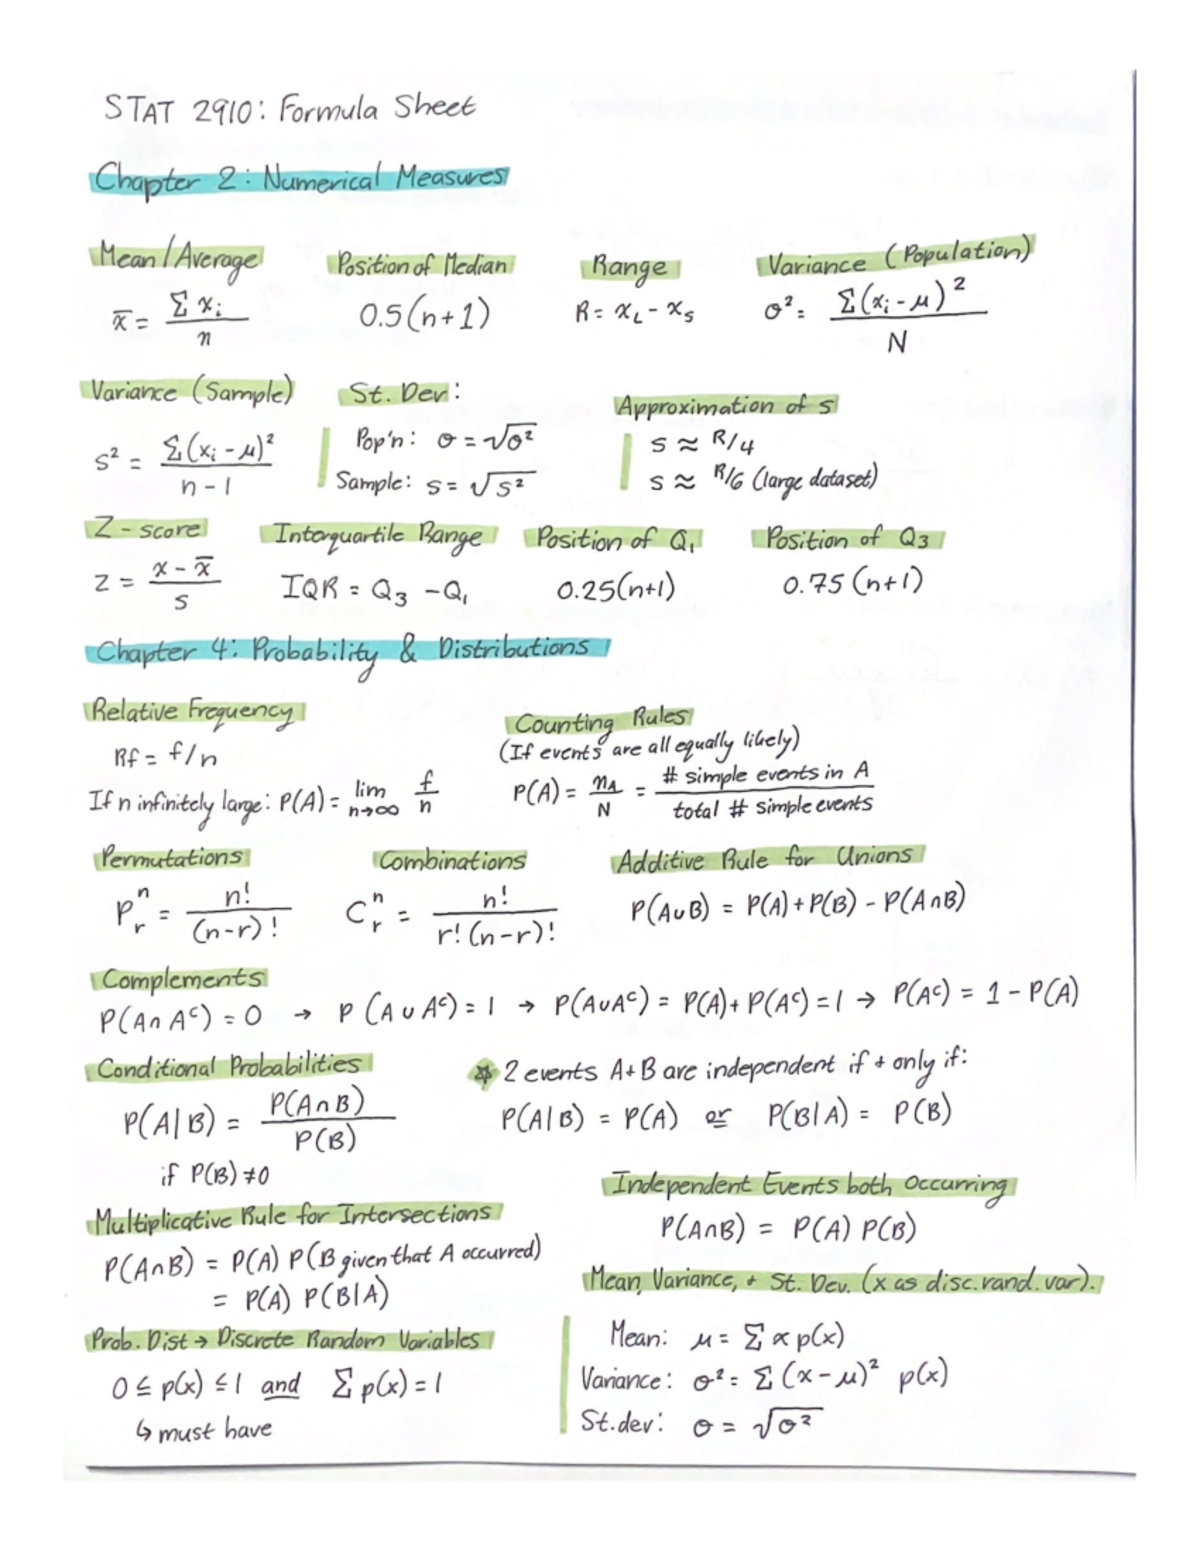 STAT 2910: Formula Sheet
Chapter 2: Numerical Measures
Mean/Average
x̄ = Σxᵢ / n
Position of Median
0.5(n+1)
Range
R = x_L - x_S
Variance (Population)
σ² = Σ(xᵢ - μ)² / N
Variance (Sample)
s² = Σ(xᵢ - μ)² / n - 1
St. Dev:
Pop'n: σ = √σ²
Sample: s = √s²
Approximation of s
s ≈ R/4
s ≈ R/6 (large dataset)
Z-score
z = x - x̄ / s
Interquartile Range
IQR = Q₃ - Q₁
Position of Q₁
0.25(n+1)
Position of Q3
0.75(n+1)
Chapter 4: Probability & Distributions
Relative Frequency
Rf = f/n
If n infinitely large: P(A) = lim n→∞ f/n
Counting Rules
(If events are all equally likely)
P(A) = n_A / N = # simple events in A / total # simple events
Permutations
Pⁿᵣ = n! / (n-r)!
Combinations
Cⁿᵣ = n! / r!(n-r)!
Additive Rule for Unions
P(A∪B) = P(A) + P(B) - P(A∩B)
Complements
P(A∩Aᶜ) = 0 → P(A∪Aᶜ) = 1 → P(A∪Aᶜ) = P(A) + P(Aᶜ) = 1 → P(Aᶜ) = 1 - P(A)
Conditional Probabilities
P(A|B) = P(A∩B) / P(B)
if P(B) ≠ 0
2 events A + B are independent if + only if:
P(A|B) = P(A) or P(B|A) = P(B)
Multiplicative Rule for Intersections
P(A∩B) = P(A) P(B given that A occurred)
= P(A) P(B|A)
Independent Events both Occurring
P(A∩B) = P(A) P(B)
Prob. Dist → Discrete Random Variables
0 ≤ p(x) ≤ 1 and Σp(x) = 1
↳ must have
Mean, Variance, + St. Dev. (x as disc. rand. var).
Mean: μ = Σ x p(x)
Variance: σ² = Σ (x - μ)² p(x)
St.dev: σ = √σ²